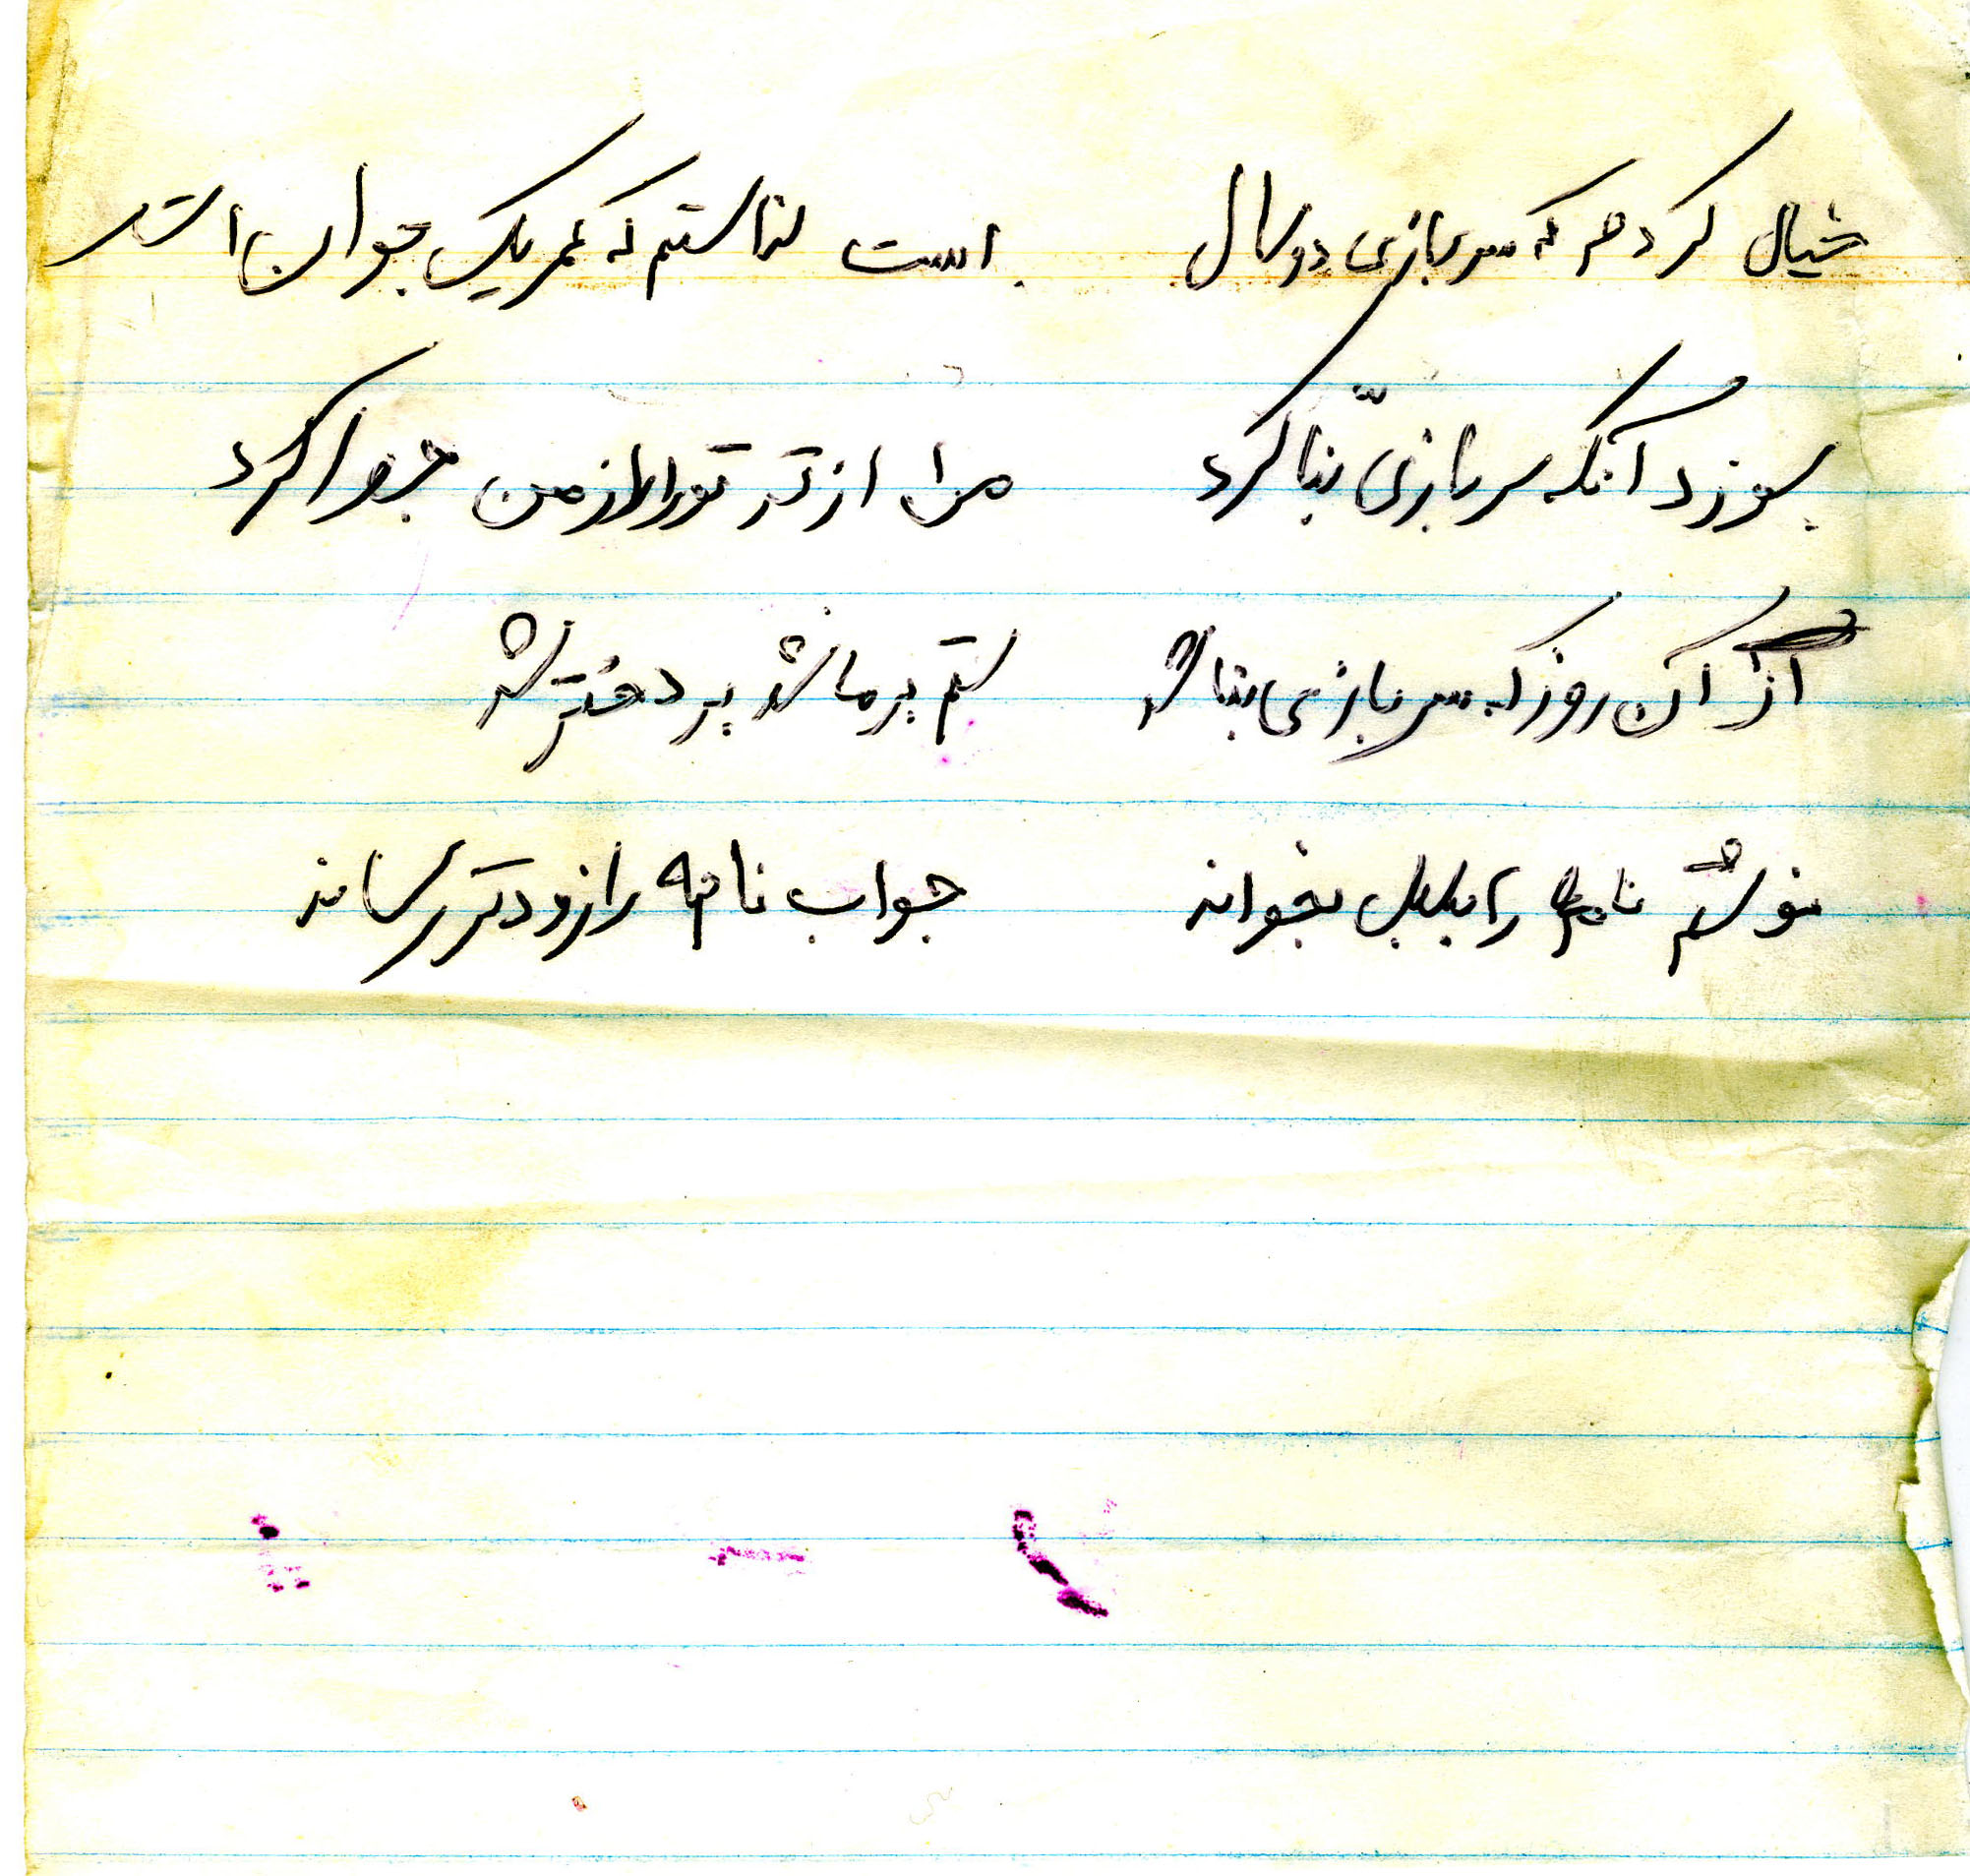 خیال کردم که سربازی دو سال است ندانستم که عمر یک جوان است
بسوزد آنکه سربازی بنا کرد مرا از تو تو را از من جدا کرد
از آن روز که سربازی بنا شد ستم بر ما نشد بر دختر شد
نوشتم نامه را بلبل بخواند جواب نامه را زودتر رساند